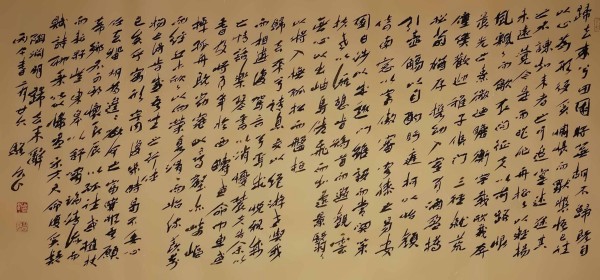 歸去來兮田園將蕪胡不歸既自
以心為形役奚惆悵而獨悲悟已往
之不諫知來者之可追實迷途其
未遠覺今是而昨非舟遙遙以輕颺
風飄飄而吹衣問征夫以前路恨
晨光之熹微乃瞻衡宇載欣載奔
僮僕歡迎稚子候門三徑就荒
松菊猶存攜幼入室有酒盈樽
引壺觴以自酌眄庭柯以怡顏
倚南窗以寄傲審容膝之易安
園日涉以成趣門雖設而常關策
扶老以流憩時矯首而遐觀雲
無心以出岫鳥倦飛而知還景翳翳
以將入撫孤松而盤桓
歸去來兮請息交以絕遊世與我
而相違復駕言兮焉求悅親戚
之情話樂琴書以消憂農人告余以
春及將有事於西疇或命巾車或
棹孤舟既窈窕以尋壑亦崎嶇
而經丘木欣欣以向榮泉涓涓而始流善萬
物之得時感吾生之行休
已矣乎寓形宇內復幾時曷不委心
任去留胡為乎遑遑欲何之富貴非吾願
帝鄉不可期懷良辰以孤往或植杖
而耘耔登東皋以舒嘯臨清流而
賦詩聊乘化以歸盡樂夫天命復奚疑
陶淵明歸去來辭